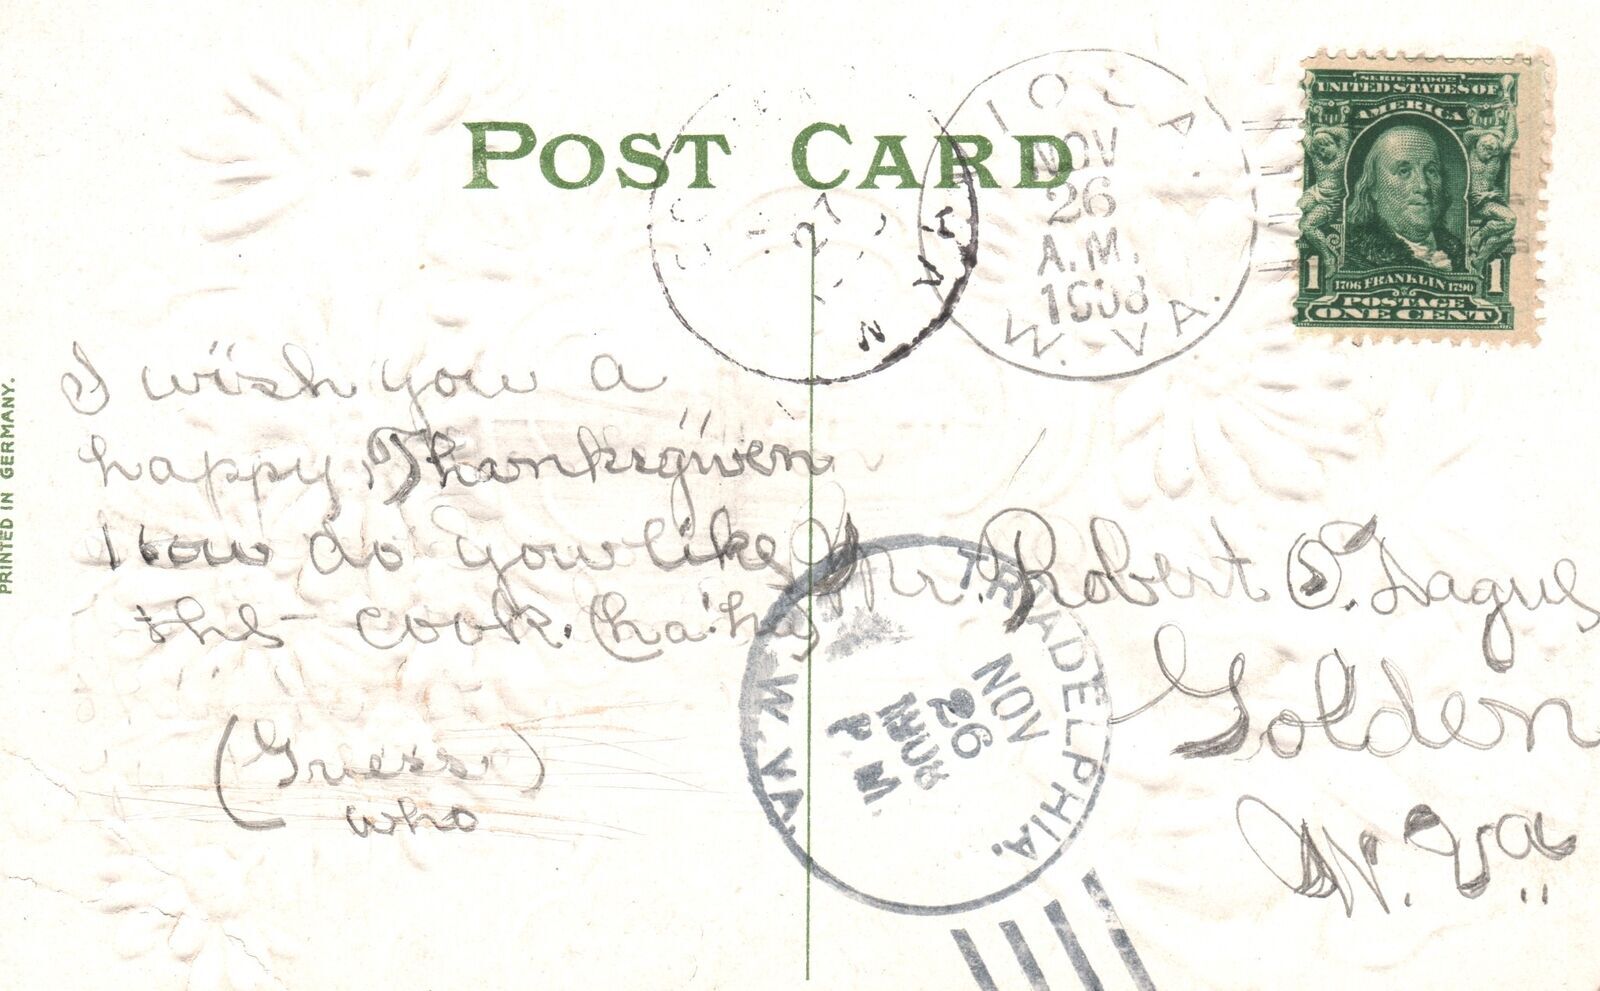 POST CARD
IOLA.
NOV
26
A.M.
1908
W. VA.
SERIES 1902
UNITED STATES OF
AMERICA
1 1
1706 FRANKLIN 1790
POSTAGE
ONE CENT
PRINTED IN GERMANY.
I wish you a
happy Thanksgiven
How do you like
the cook. (ha! ha)
(Guess)
who
Mr. Robert O. Dague
Golden
W. Va.
TRIADELPHIA.
NOV
26
P M
W. VA.